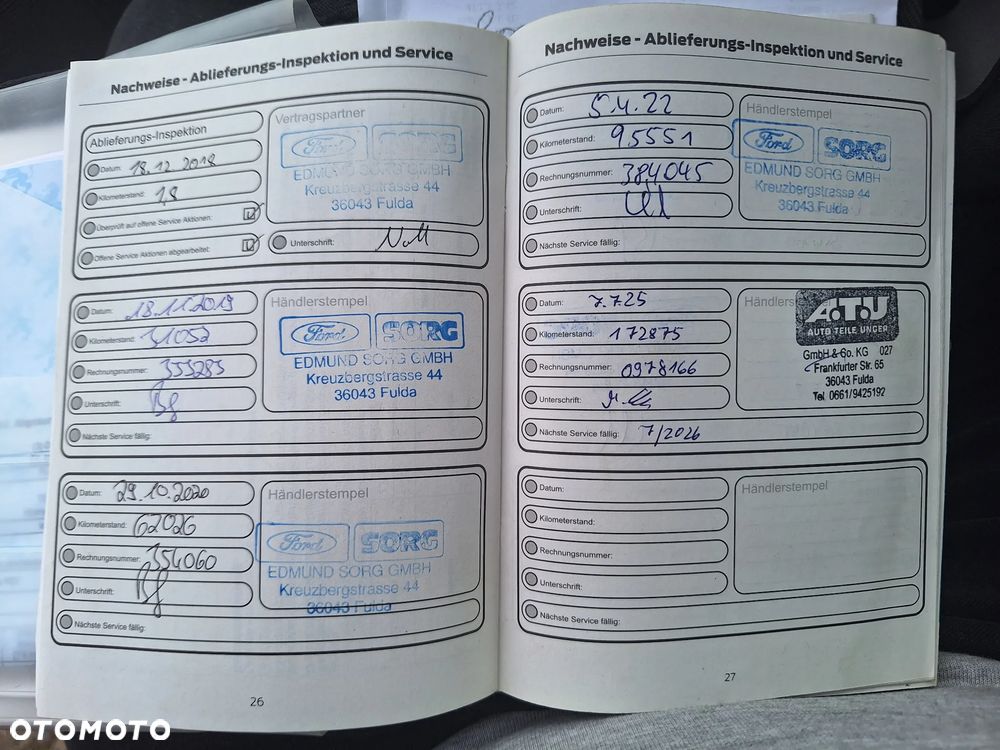 Nachweise - Ablieferungs-Inspektion und Service
Ablieferungs-Inspektion
Datum: 18.12.2018
Kilometerstand: 18
Überprüft auf offene Service Aktionen:
Offene Service Aktionen abgearbeitet:
Vertragspartner
Ford SORG
EDMUND SORG GMBH
Kreuzbergstrasse 44
36043 Fulda
Unterschrift:
Datum: 18.11.2019
Kilometerstand: 31052
Rechnungsnummer: 353285
Unterschrift:
Nächste Service fällig:
Händlerstempel
Ford SORG
EDMUND SORG GMBH
Kreuzbergstrasse 44
36043 Fulda
Datum: 29.10.2020
Kilometerstand: 62026
Rechnungsnummer: 354060
Unterschrift:
Nächste Service fällig:
Händlerstempel
Ford SORG
EDMUND SORG GMBH
Kreuzbergstrasse 44
36043 Fulda
26
Nachweise - Ablieferungs-Inspektion und Service
Datum: 5.4.22
Kilometerstand: 95551
Rechnungsnummer: 384045
Unterschrift:
Nächste Service fällig:
Händlerstempel
Ford SORG
EDMUND SORG GMBH
Kreuzbergstrasse 44
36043 Fulda
Datum: 7.7.25
Kilometerstand: 172875
Rechnungsnummer: 0978166
Unterschrift:
Nächste Service fällig: 7/2026
A.T.U
AUTO TEILE UNGER
GmbH & Co. KG 027
Frankfurter Str. 65
36043 Fulda
Tel. 0661/9425192
Datum:
Kilometerstand:
Rechnungsnummer:
Unterschrift:
Nächste Service fällig:
Händlerstempel
27
OTOMOTO